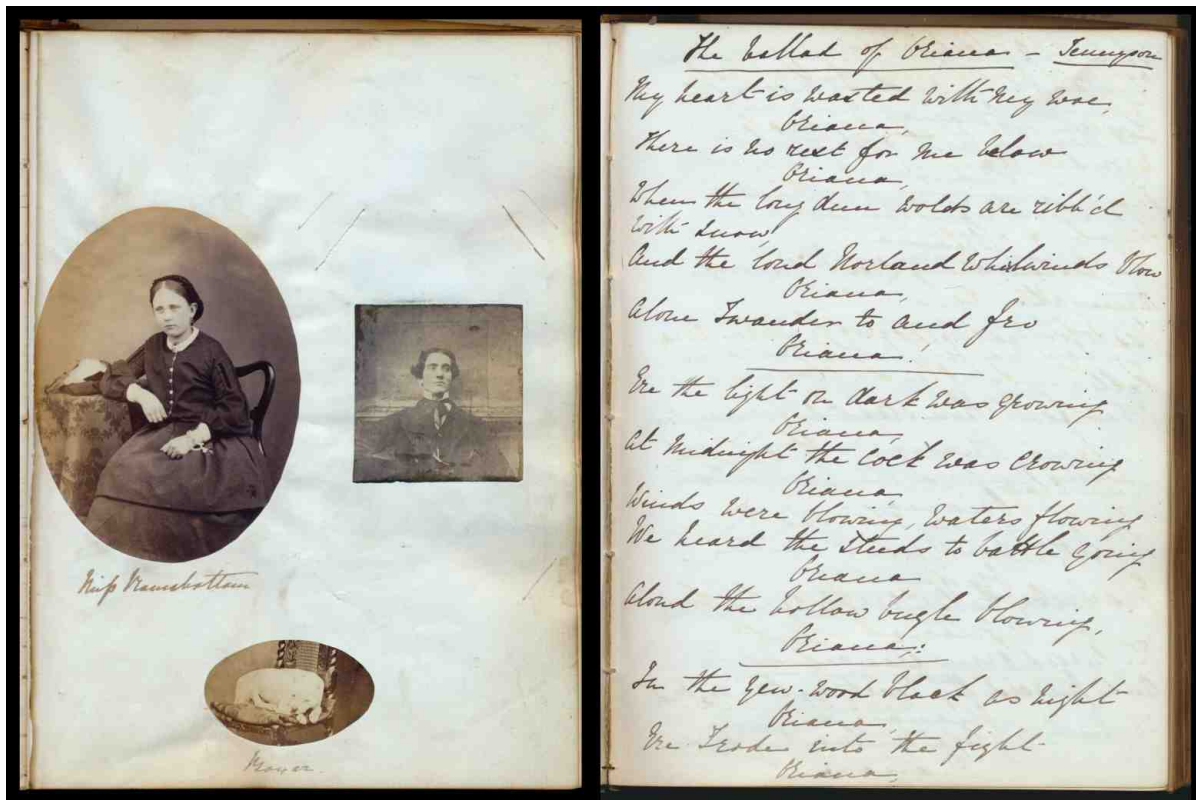 Miss Ramsbottom
The Ballad of Oriana - Tennyson
My heart is wasted with my woe,
Oriana,
There is no rest for me below
Oriana,
When the long dun wolds are ribb'd
with snow,
And the loud Norland Whirlwinds blow
Oriana,
Alone I wander to and fro
Oriana!
Ere the light on dark was growing
Oriana,
At midnight the Cock was crowing
Oriana,
Winds were blowing, waters flowing
We heard the Steeds to battle going
Oriana
Aloud the hollow bugle blowing,
Oriana;
In the yew-wood black as night
Oriana,
Ere I rode into the fight
Oriana,